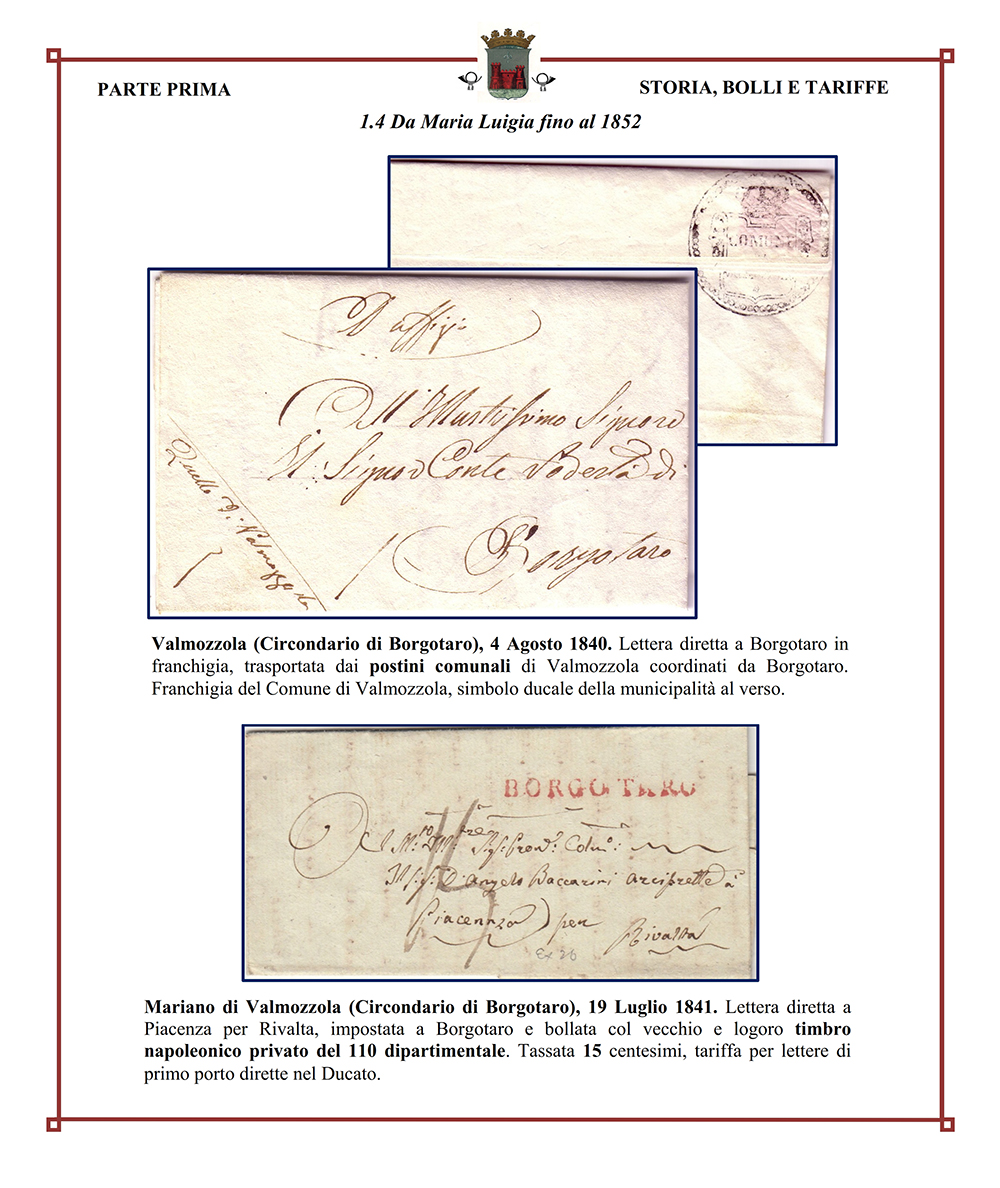 PARTE PRIMA
STORIA, BOLLI E TARIFFE
1.4 Da Maria Luigia fino al 1852
COMUNE
D'affizio
All'Illustrissimo Signore
Il Signor Conte Podestà di
Borgotaro
Quello di Valmozzola
Valmozzola (Circondario di Borgotaro), 4 Agosto 1840. Lettera diretta a Borgotaro in
franchigia, trasportata dai postini comunali di Valmozzola coordinati da Borgotaro.
Franchigia del Comune di Valmozzola, simbolo ducale della municipalità al verso.
BORGO TARO
15
Il S: S: D: Angelo Baccarini arciprette à
Piacennza per
Rivalta
Ex 26
Mariano di Valmozzola (Circondario di Borgotaro), 19 Luglio 1841. Lettera diretta a
Piacenza per Rivalta, impostata a Borgotaro e bollata col vecchio e logoro timbro
napoleonico privato del 110 dipartimentale. Tassata 15 centesimi, tariffa per lettere di
primo porto dirette nel Ducato.